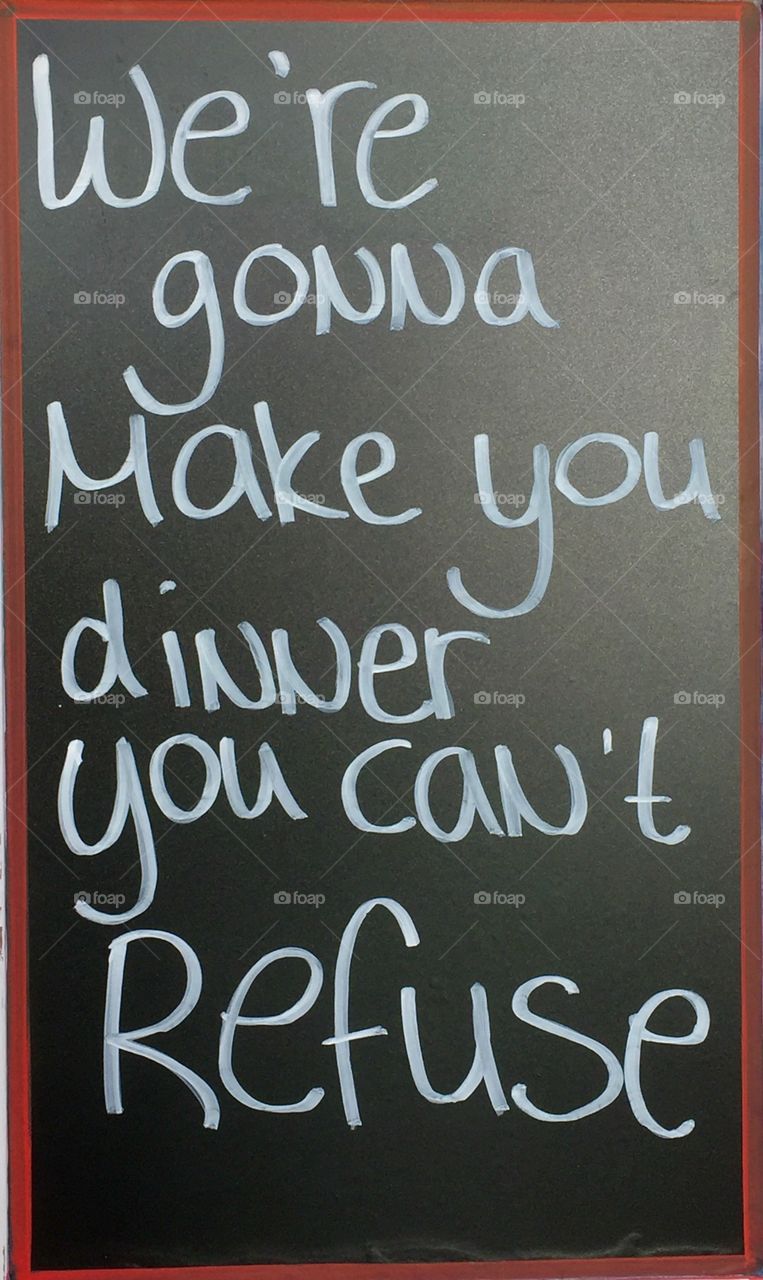 We're
gonna
Make you
dinner
you can't
Refuse
foap